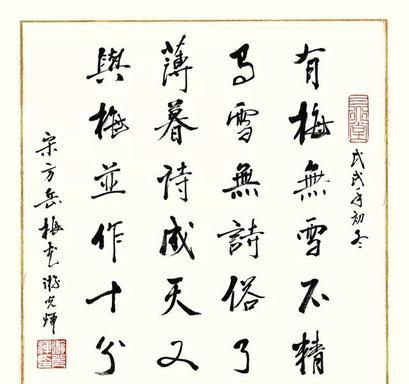 戊戌年初冬
有梅無雪不精
有雪無詩俗了
薄暮詩成天又
與梅並作十分
宋方岳梅花游光輝